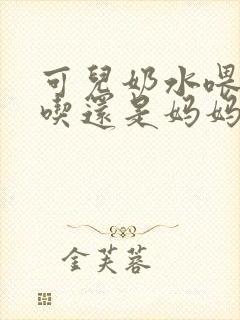 可兒奶水喂
喫還是妈妈
金芙蓉